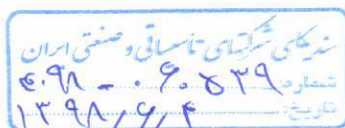 سندیکای شرکتهای تأسیساتی و صنعتی ایران
شماره: ۴۰۹۸ - ۰۶۰۵۳۹
تاریخ: ۱۳۹۸,۶,۴